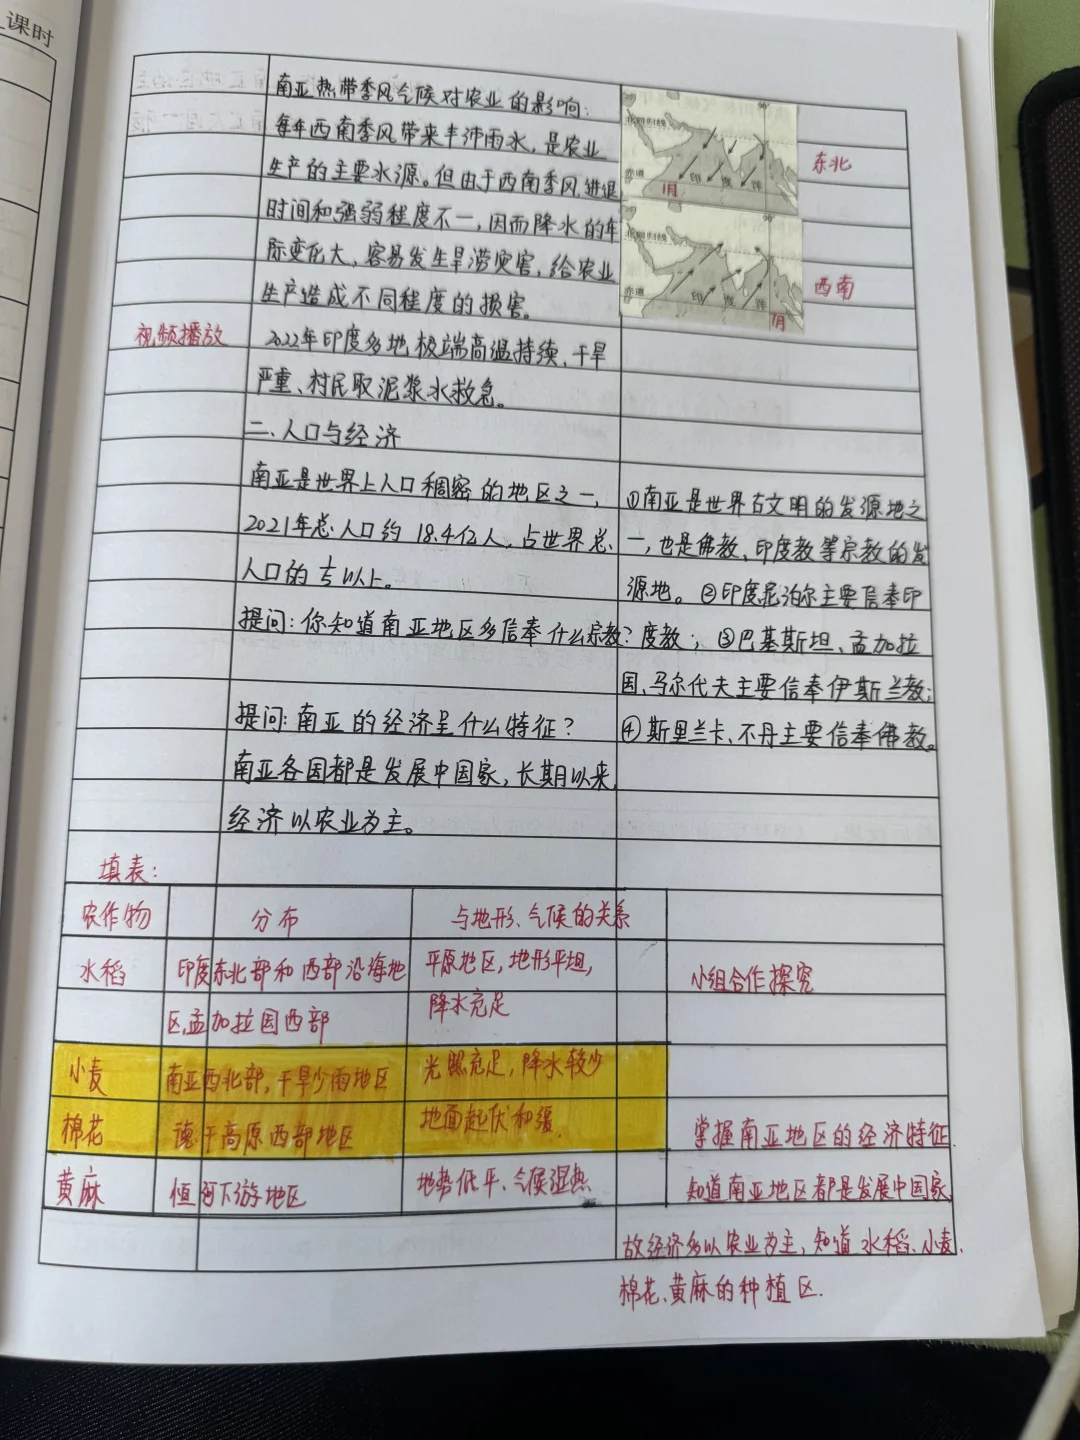 课时
南亚热带季风气候对农业的影响：
每年西南季风带来丰沛雨水，是农业
生产的主要水源。但由于西南季风进退
时间和强弱程度不一，因而降水的年
际变化大，容易发生旱涝灾害，给农业
生产造成不同程度的损害。
90°
北回归线
赤道
0°
1月
印 度 洋
东北
90°
北回归线
赤道
0°
印 度 洋
7月
西南
视频播放
2022年印度多地极端高温持续、干旱
严重、村民取泥浆水救急。
二、人口与经济
南亚是世界上人口稠密的地区之一，
2021年总人口约18.4亿人，占世界总
人口的1/5以上。
提问：你知道南亚地区多信奉什么宗教？
①南亚是世界古文明的发源地之
一，也是佛教、印度教等宗教的发
源地。②印度尼泊尔主要信奉印
度教；③巴基斯坦、孟加拉
国、马尔代夫主要信奉伊斯兰教；
④斯里兰卡、不丹主要信奉佛教。
提问：南亚的经济呈什么特征？
南亚各国都是发展中国家，长期以来
经济以农业为主。
填表：
农作物 分布 与地形、气候的关系
水稻 印度东北部和西部沿海地 平原地区，地形平坦，
区，孟加拉国西部 降水充足
小组合作探究
小麦 南亚西北部，干旱少雨地区 光照充足，降水较少
棉花 德干高原西部地区 地面起伏和缓.
黄麻 恒河下游地区 地势低平、气候湿热
掌握南亚地区的经济特征.
知道南亚地区都是发展中国家,
故经济多以农业为主，知道水稻、小麦、
棉花、黄麻的种植区.